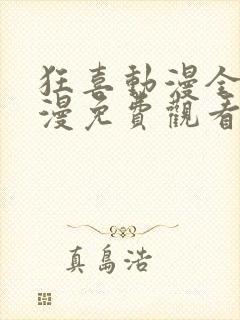 狂喜動漫全
漫免費觀看
真島浩